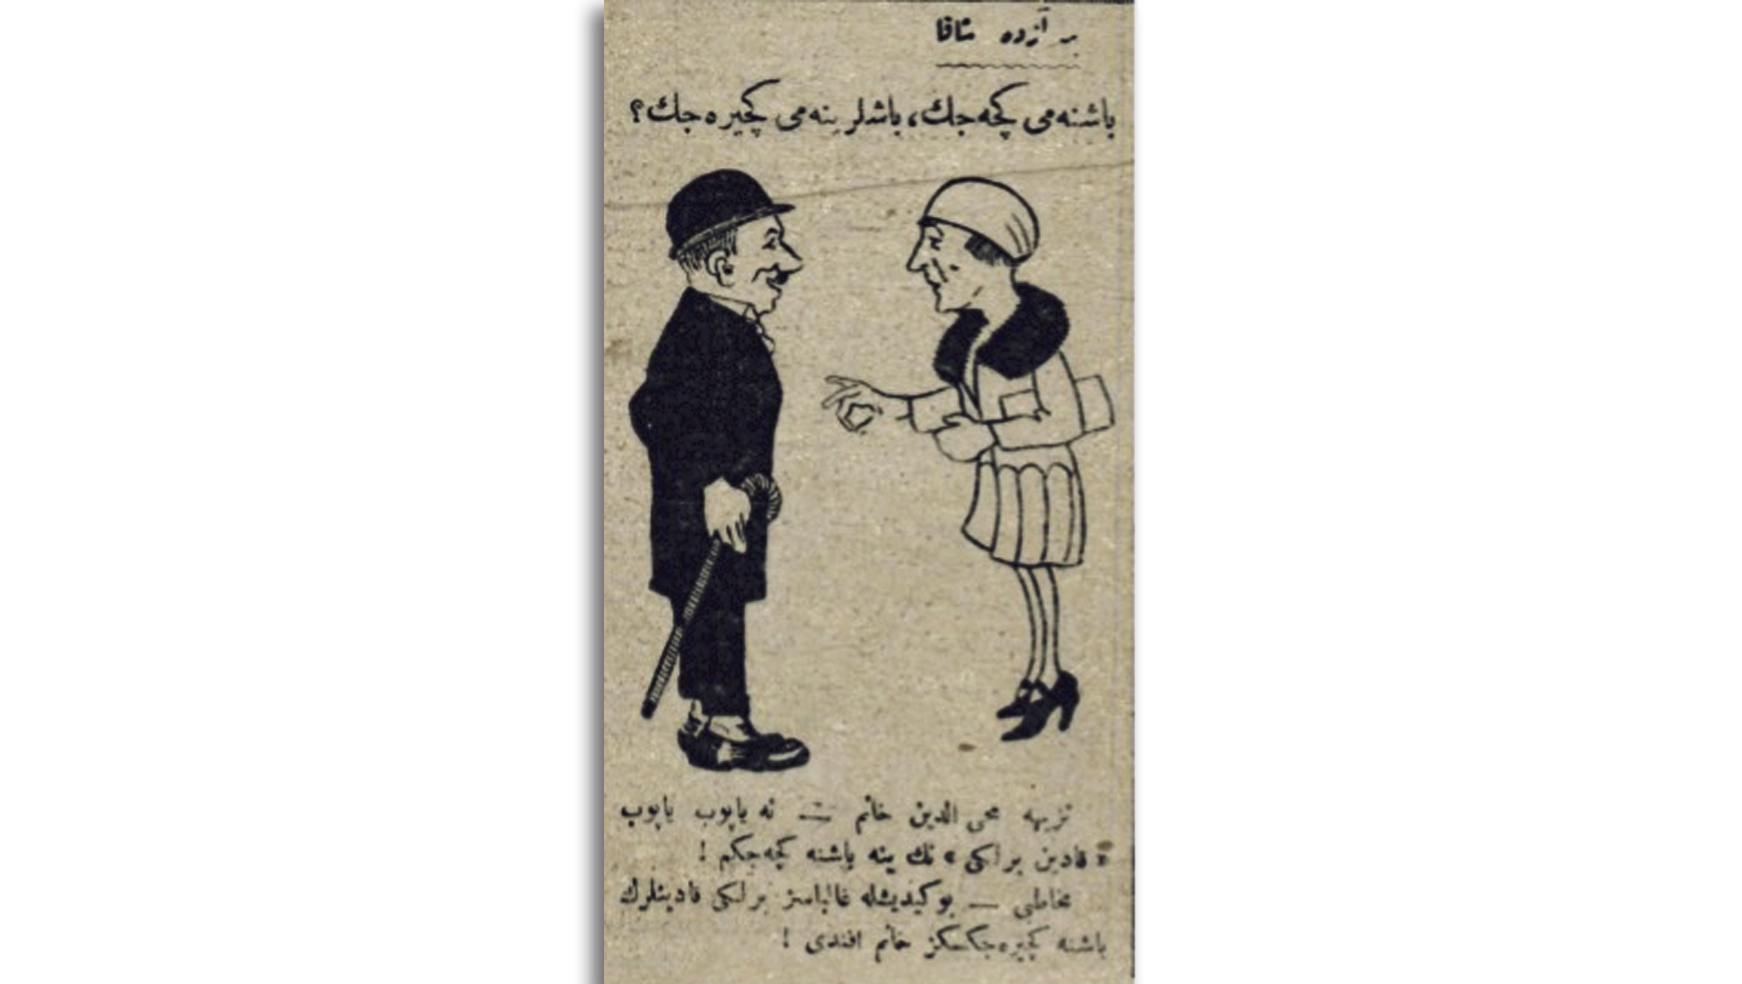 بر آزده شاقا
باشنه‌می کچه‌جك، باشلرینه‌می کچیره‌جك؟
نزیهه محی الدین خانم — نه یاپوب یاپوب
«قادین برلکی» نك ینه باشنه کچه‌جکم !
مخاطبی — بو کیدیشله غالبا سز برلکی قادینلرك
باشنه کچیره‌جکسکز خانم افندی !